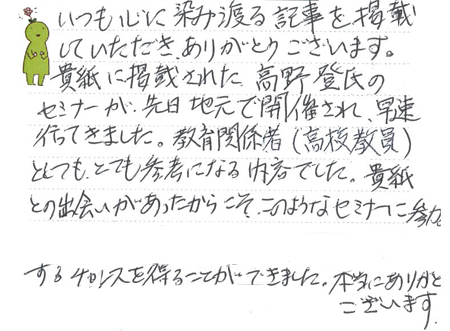 いつも心に染み渡る記事を掲載
していただき、ありがとうございます。
貴紙に掲載された、高野登氏の
セミナーが、先日地元で開催され、早速
行ってきました。教育関係者(高校教員)
としても、とても参考になる内容でした。貴紙
との出会いがあったからこそ、このようなセミナーに参加
するチャンスを得ることができました。本当にありがとう
ございます。